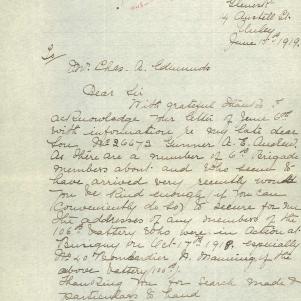 Austell St.
June 1919.
To
Mr. Chas. A. Edmunds
Dear Sir
With grateful thanks I
acknowledge your letter of June 6th
with information re my late dear
Son No 26673 Gunner A. E.
As there are a number of 6th Brigade
members about and who seem to
have arrived very recently would
you be kind enough if you can
conveniently do so to secure for me
the addresses of any members of the
106th Battery who were in action at
on Oct 17th 1918. especially
Bombardier A. Manning of the
above battery (106th)
Thanking you for search made &
particulars to hand